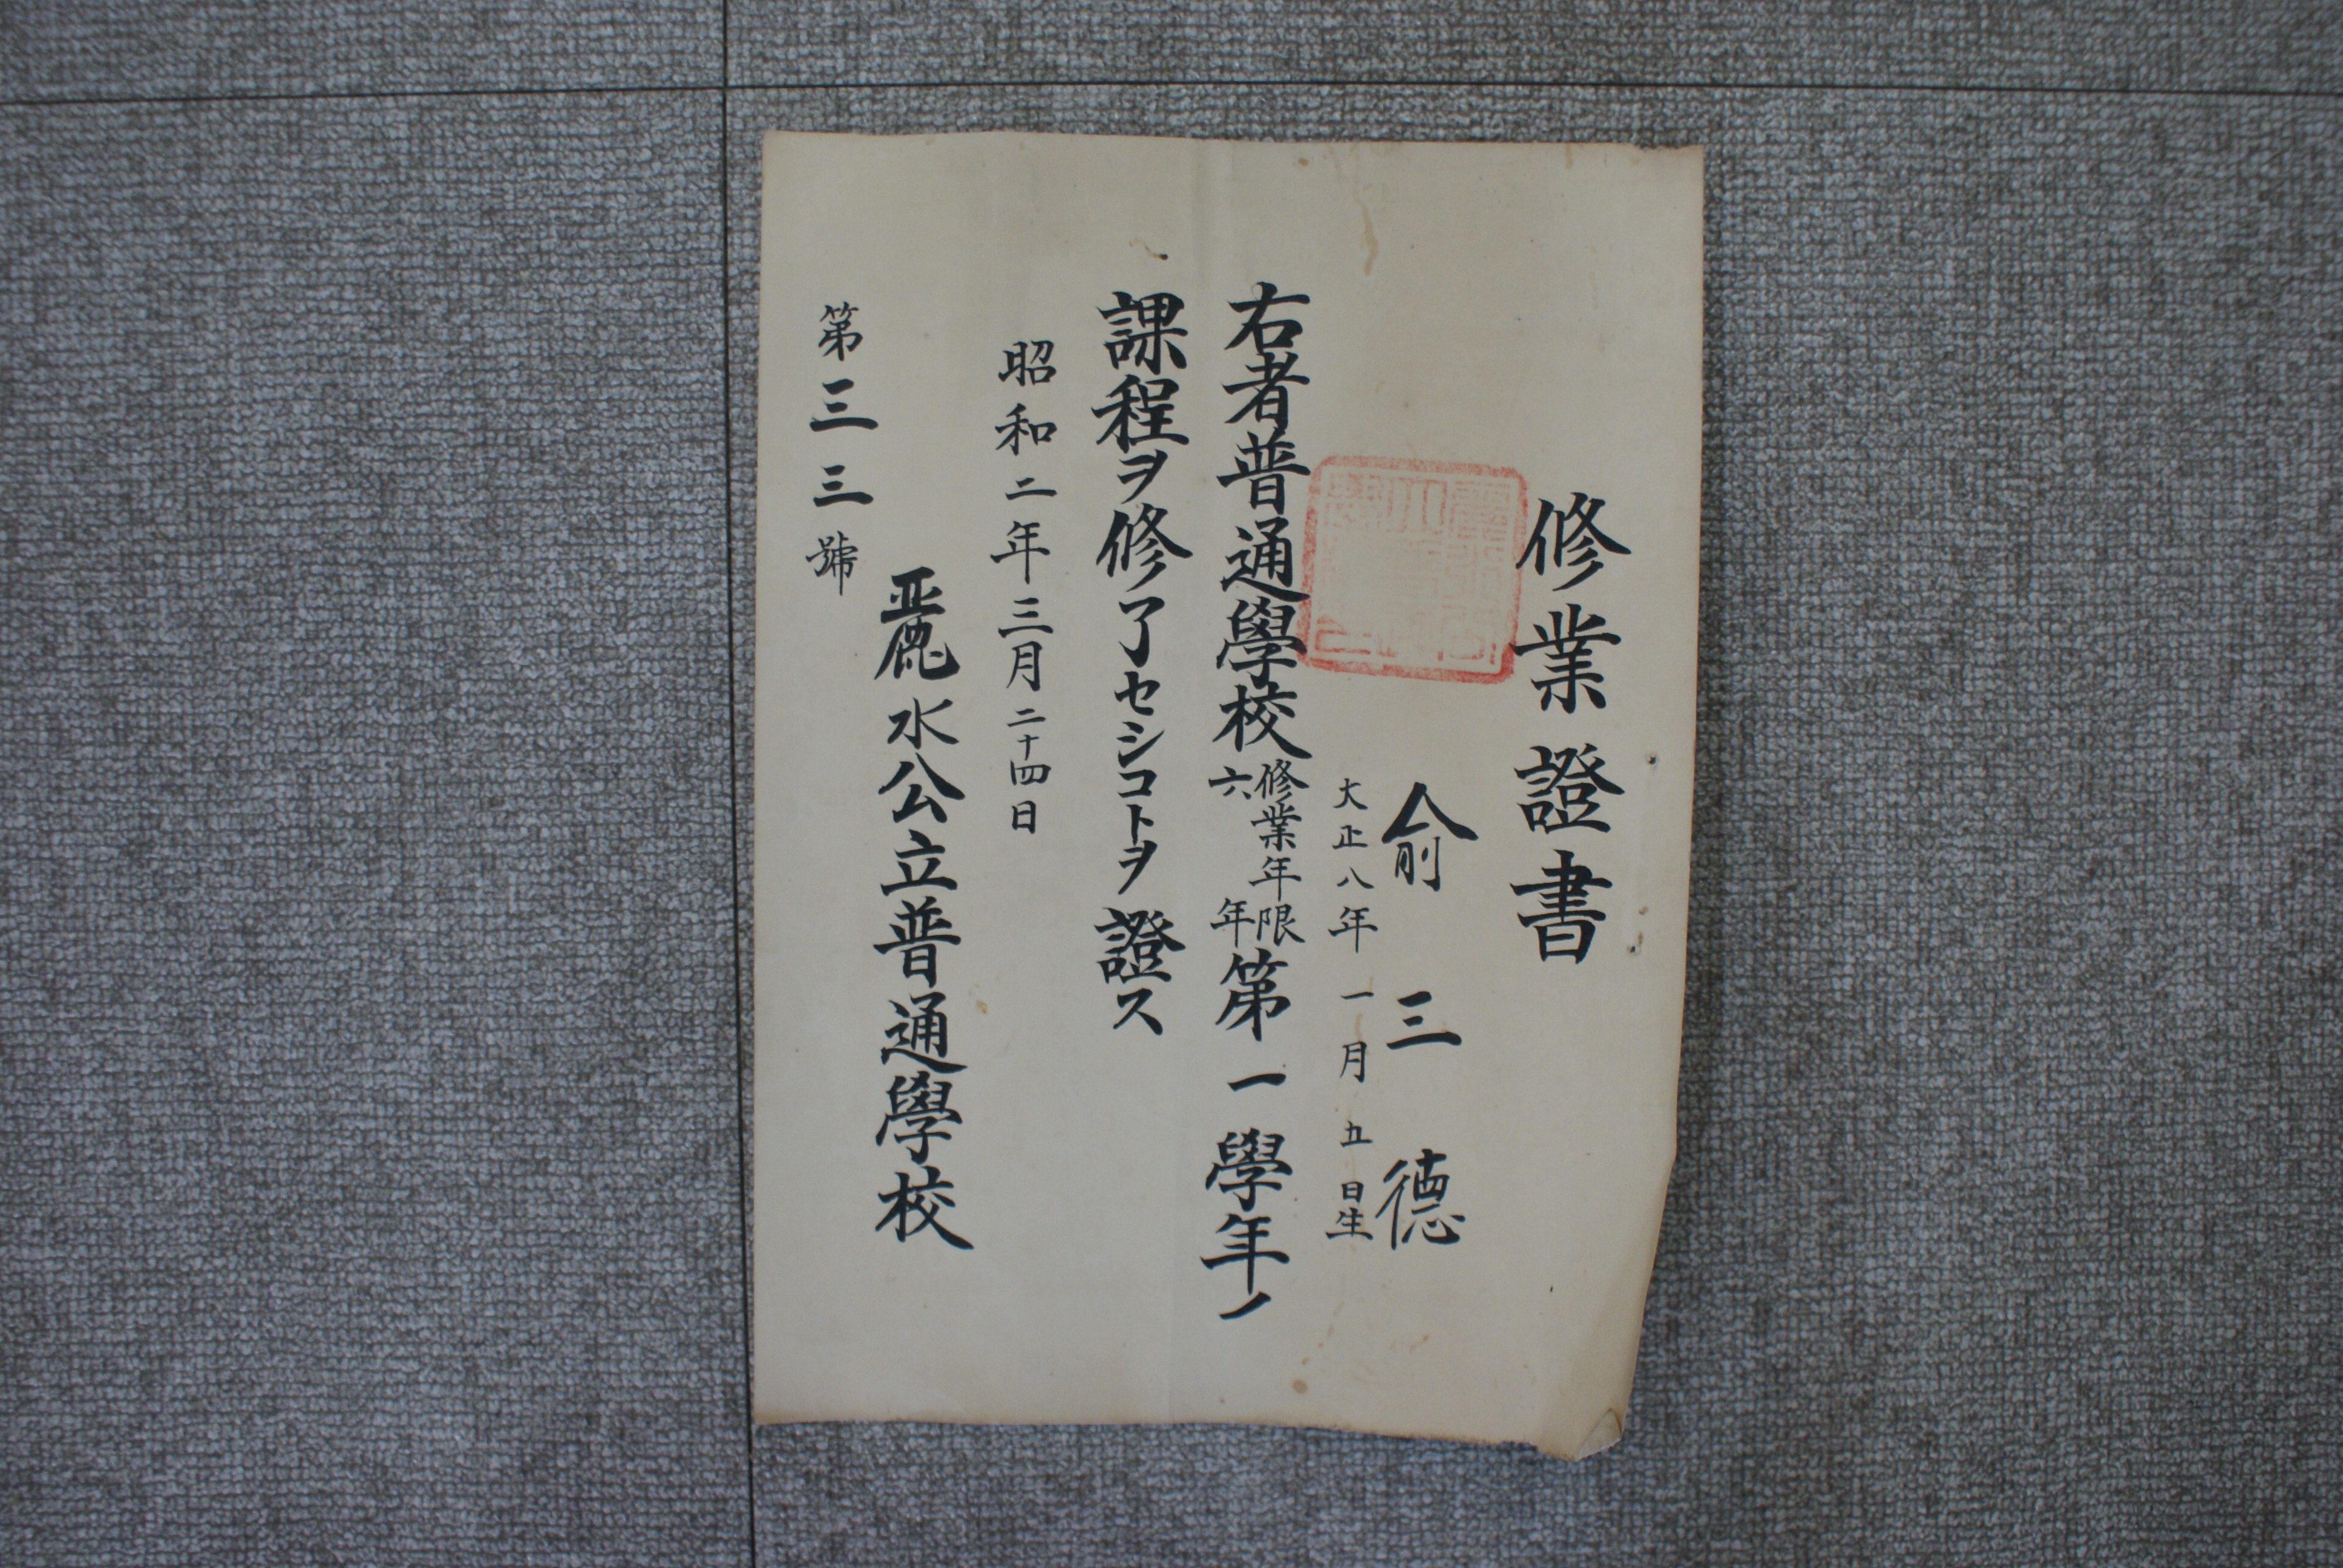 修業證書
俞三德
大正八年一月五日生
右者普通學校修業年限六年第一學年ノ
課程ヲ修了セシコトヲ證ス
昭和二年三月二十四日
麗水公立普通學校
第三三號